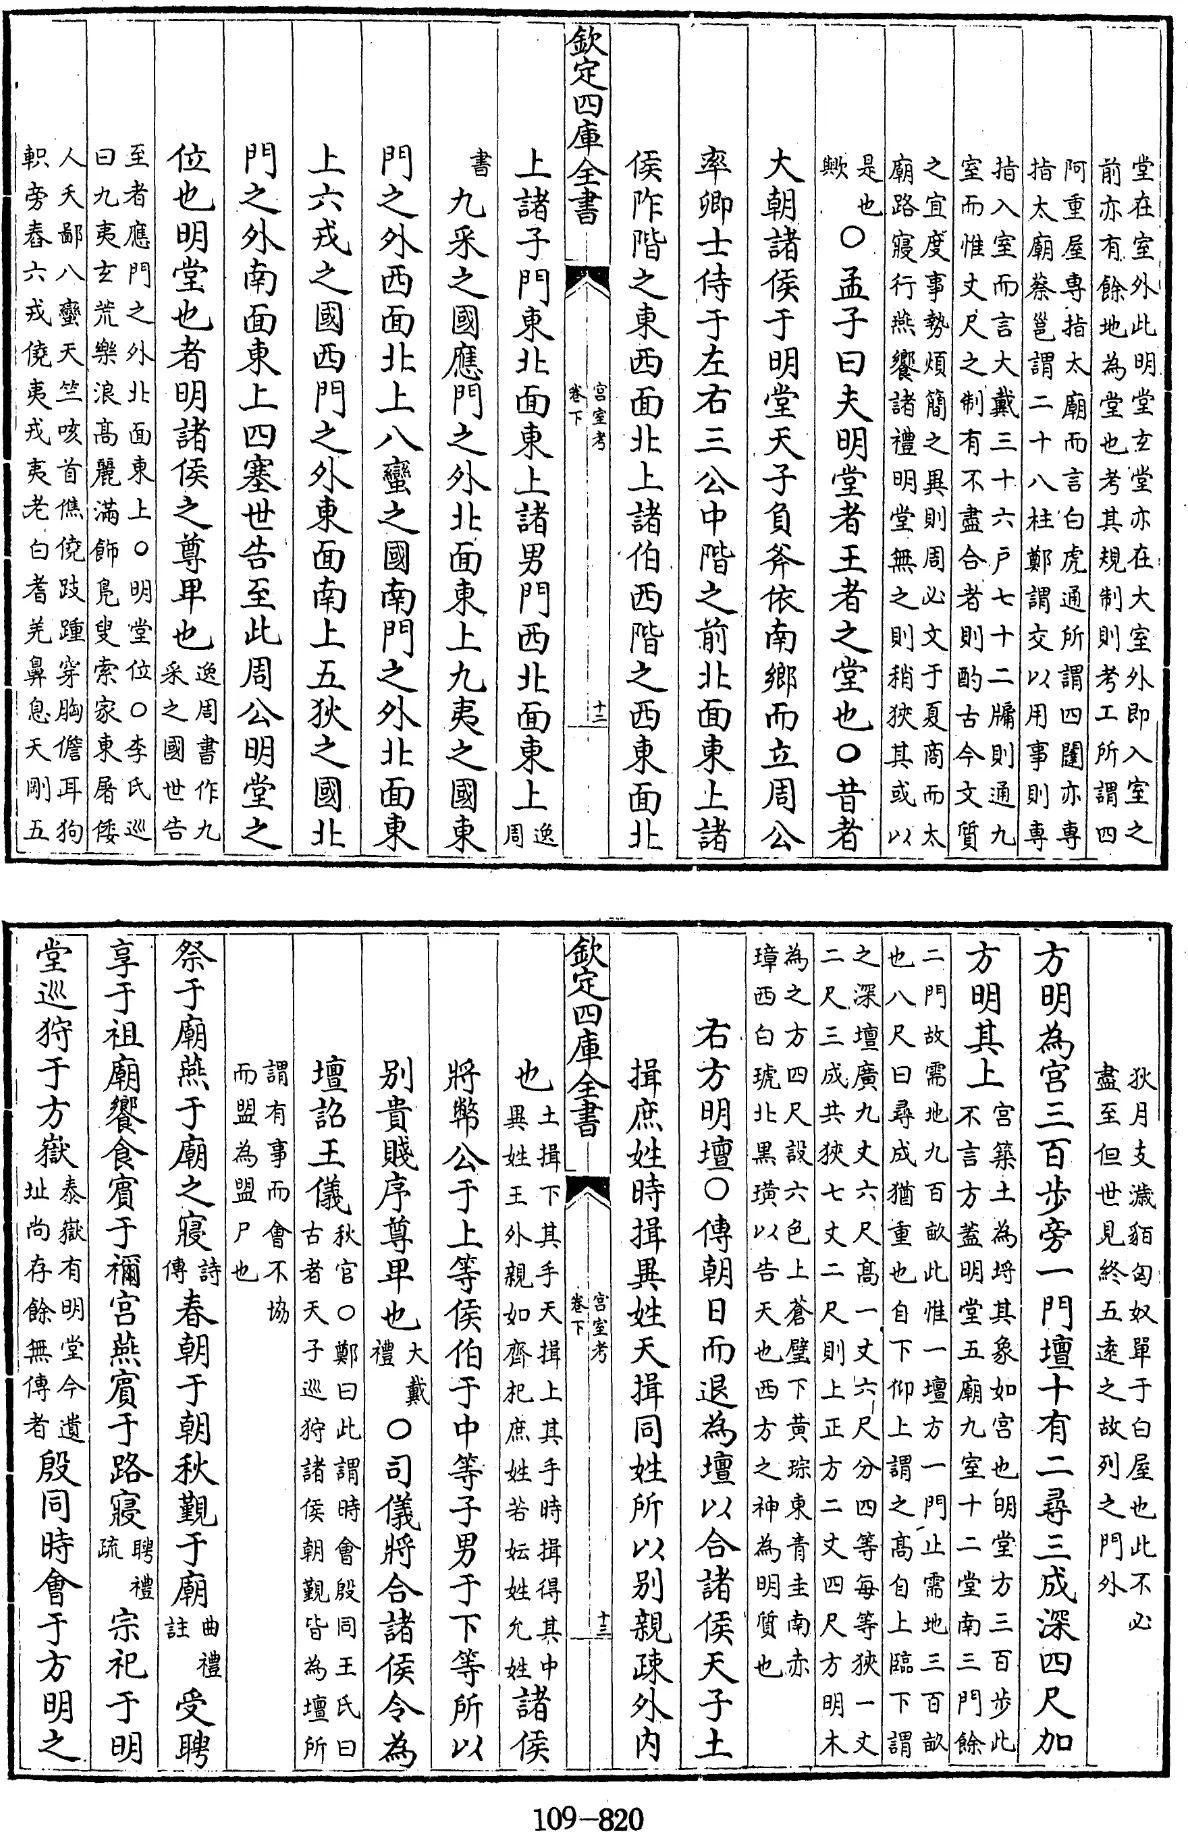 堂在室外此明堂玄堂亦在大室外即入室之
前亦有餘地為堂也考其規制則考工所謂四
阿重屋專指太廟而言白虎通所謂四闥亦專
指太廟蔡邕謂二十八柱鄭謂交以用事則專
指入室而言大戴三十六戶七十二牖則通九
室而惟丈尺之制有不盡合者則酌古今文質
之宜度事勢煩簡之異則周必文于夏商而太
廟路寢行燕饗諸禮明堂無之則稍狹其或以
是也歟○孟子曰夫明堂者王者之堂也○昔者
大朝諸侯于明堂天子負斧依南鄉而立周公
率卿士侍于左右三公中階之前北面東上諸
侯阼階之東西面北上諸伯西階之西東面北
欽定四庫全書 宮室考 卷下 十二
上諸子門東北面東上諸男門西北面東上逸周
書九采之國應門之外北面東上九夷之國東
門之外西面北上八蠻之國南門之外北面東
上六戎之國西門之外東面南上五狄之國北
門之外南面東上四塞世告至此周公明堂之
位也明堂也者明諸侯之尊卑也逸周書作九采之國世告
至者應門之外北面東上○明堂位○李氏巡
曰九夷玄荒樂浪高麗滿飾鳧臾索家東屠倭
人夭鄙八蠻天竺咳首僬僥跂踵穿胸儋耳狗
軹旁舂六戎僥夷戎夷老白耆羌鼻息天剛五
狄月支濊貊匈奴單于白屋也此不必
盡至但世見終五逺之故列之門外
方明為宮三百步旁一門壇十有二尋三成深四尺加
方明其上宮築土為埒其象如宮也明堂方三百步此不言方蓋明堂五廟九室十二堂南三門餘
二門故需地九百畝此惟一壇方一門止需地三百畝
也八尺曰尋成猶重也自下仰上謂之高自上臨下謂
之深壇廣九丈六尺高一丈六尺分四等每等狹一丈
二尺三成共狹七丈二尺則上正方二丈四尺方明木
為之方四尺設六色上蒼璧下黃琮東青圭南赤
璋西白琥北黑璜以告天也西方之神為明質也
右方明壇○傳朝日而退為壇以合諸侯天子土
揖庶姓時揖異姓天揖同姓所以別親疎外內
欽定四庫全書 宮室考 卷下 十三
也土揖下其手天揖上其手時揖得其中異姓王外親如齊杞庶姓若妘姓允姓諸侯
將幣公于上等侯伯于中等子男于下等所以
別貴賤序尊卑也大戴禮○司儀將合諸侯令為
壇詔王儀秋官○鄭曰此謂時會殷同王氏曰古者天子巡狩諸侯朝覲皆為壇所
謂有事而會不協
而盟為盟尸也
祭于廟燕于廟之寢詩傳春朝于朝秋覲于廟曲禮註受聘
享于祖廟饗食賓于禰宮燕賓于路寢聘禮疏宗祀于明
堂巡狩于方嶽泰嶽有明堂今遺址尚存餘無傳者殷同時會于方明之
109-820